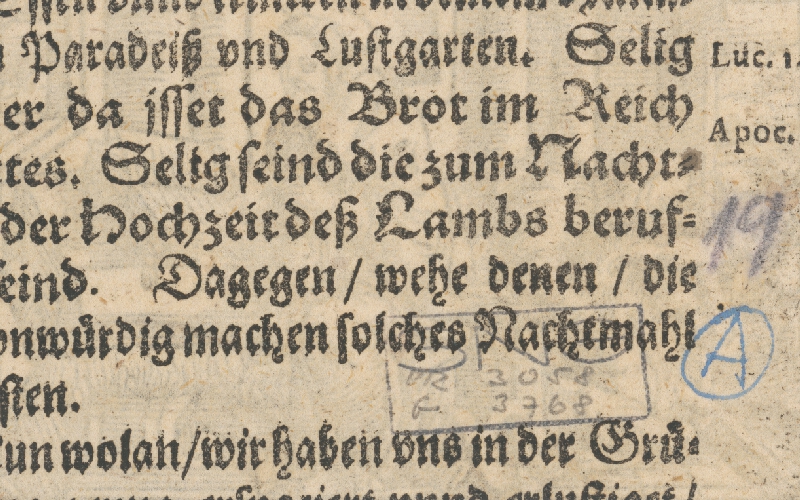 Paradeiß vnd Lustgarten. Selig
er da isset das Brot im Reich
ttes. Selig seind die zum Nacht⸗
der Hochzeit deß Lambs beruf⸗
seind. Dagegen / wehe denen / die
onwürdig machen solches Nachtmahl
sten.
un wolan/wir haben vns in der Grü⸗
Luc. 1
Apoc.
19
A
3058
3768